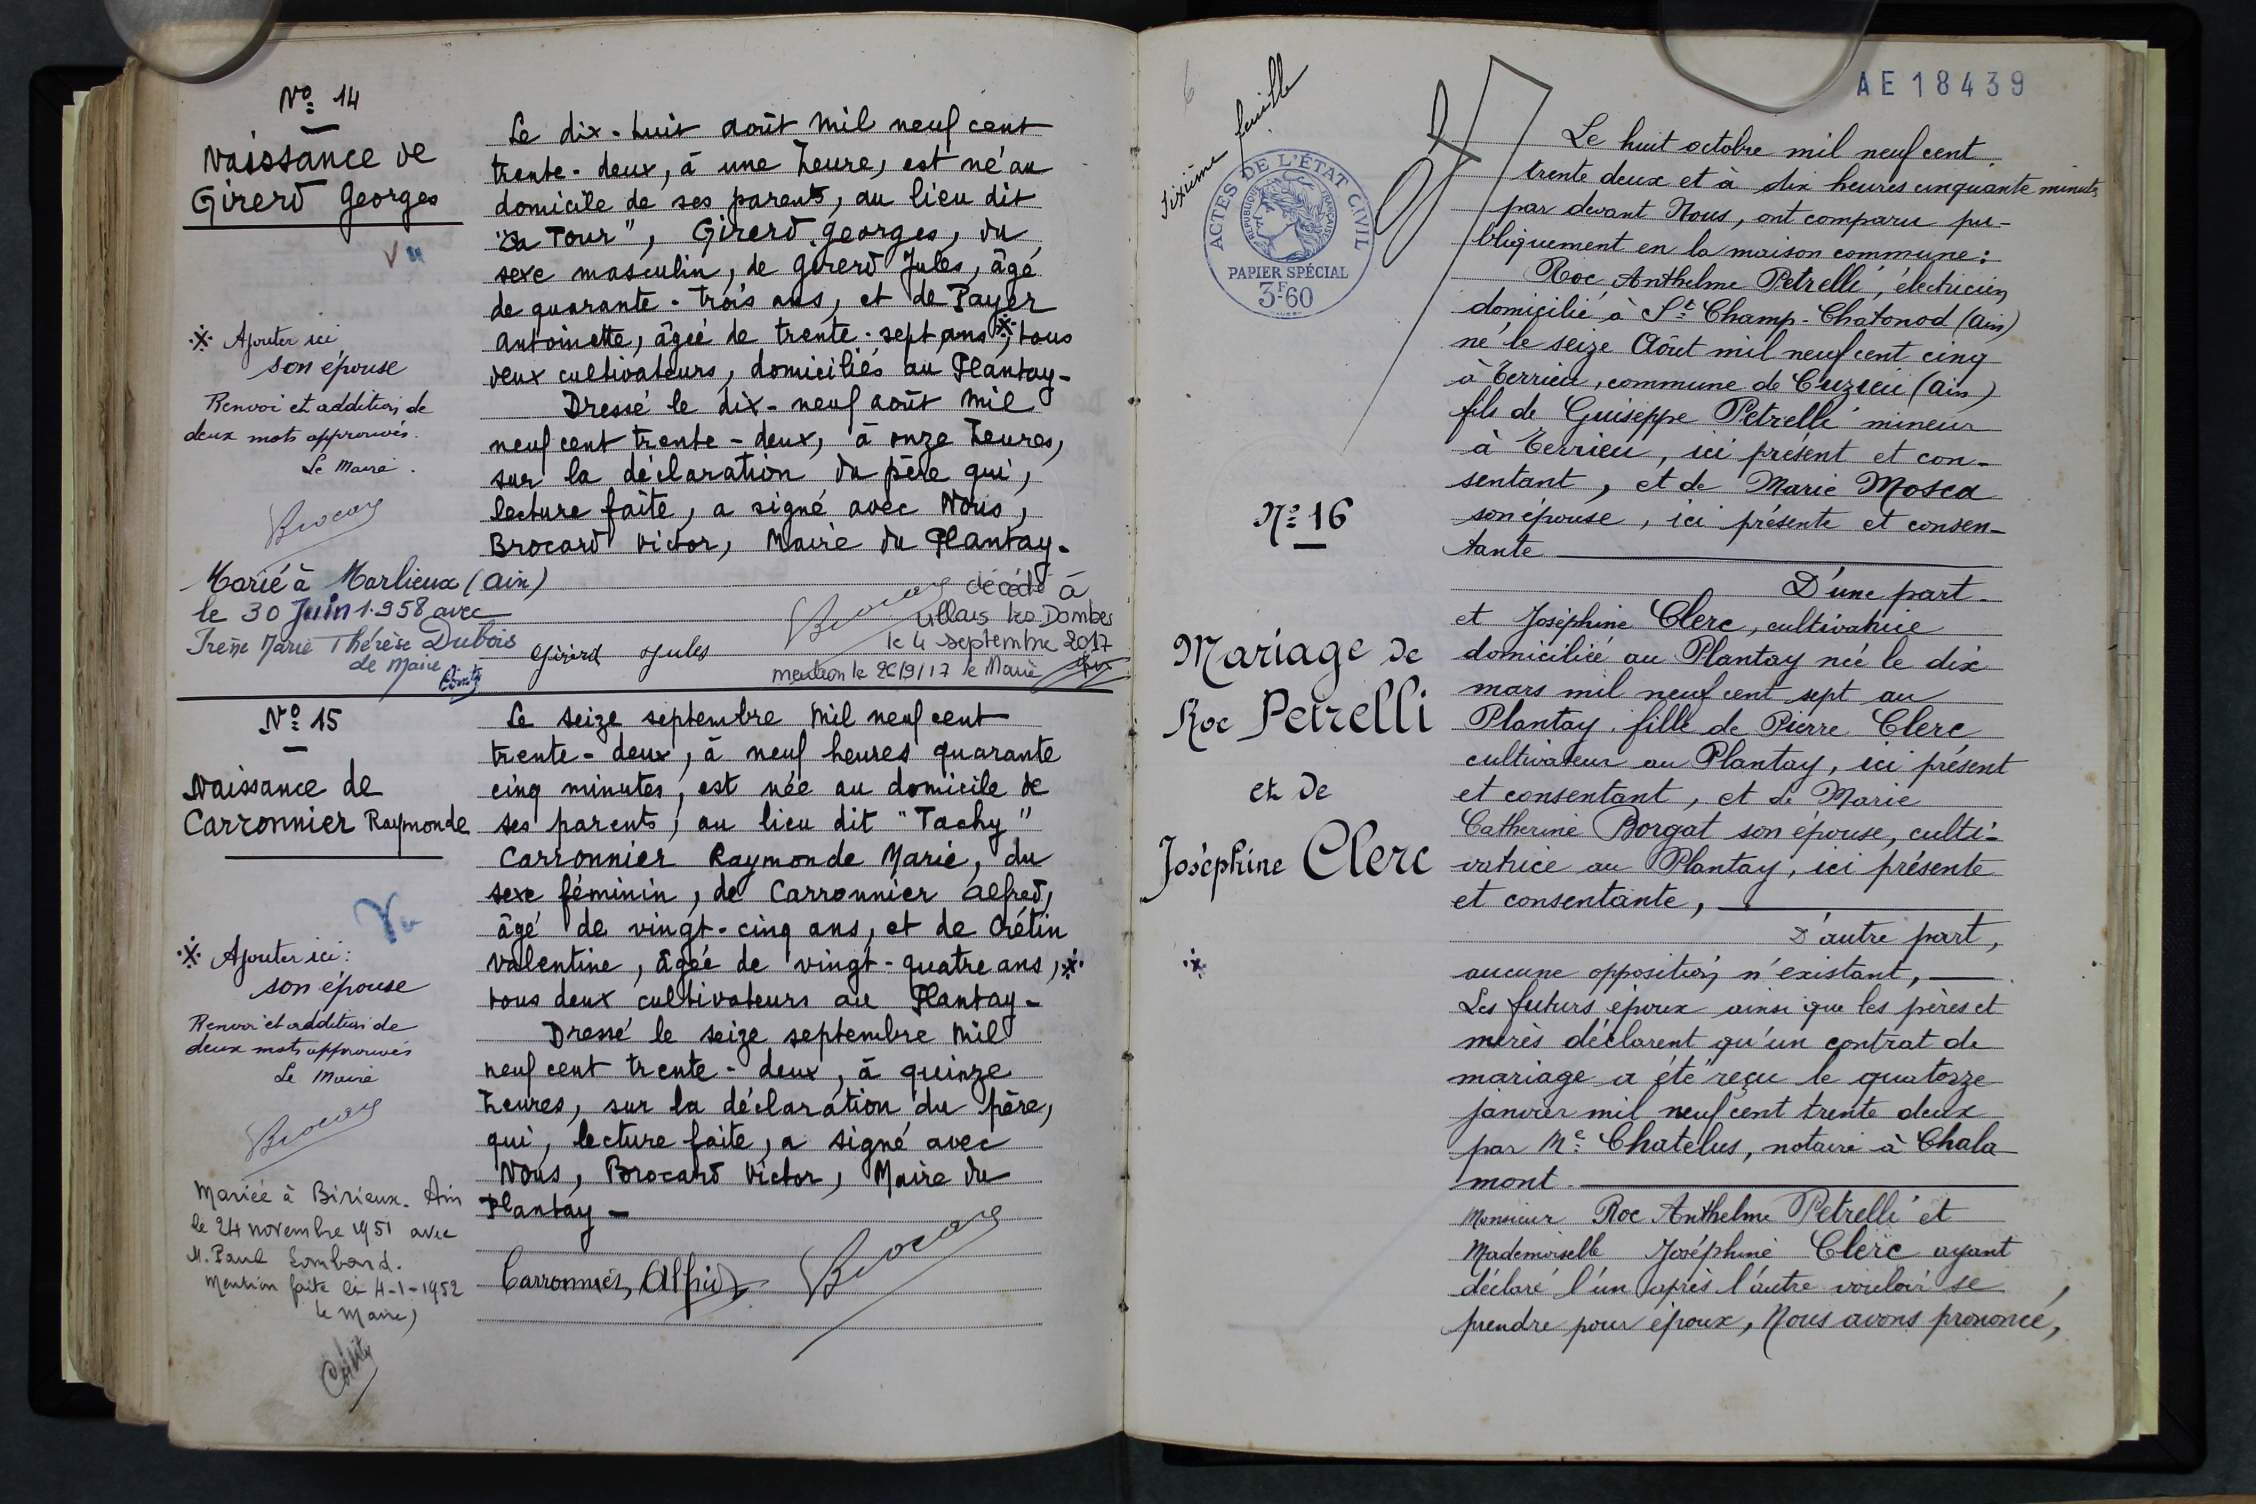 No 14
Naissance de
Girerd Georges
Vu
Le dix-huit août mil neuf cent
trente-deux, à une heure, est né au
domicile de ses parents, au lieu dit
"La Tour", Girerd Georges, du
sexe masculin, de Girerd Jules, âgé
de quarante-trois ans, et de Payer
Antoinette, âgée de trente-sept ans ※, tous
deux cultivateurs, domiciliés au Plantay-
Dressé le dix-neuf août mil
neuf cent trente-deux, à onze heures,
sur la déclaration du père qui,
lecture faite, a signé avec Nous,
Brocard Victor, Maire du Plantay-
※ Ajouter ici
son épouse
Renvoi et addition de
deux mots approuvés.
Le Maire.
Brocard
Marié à Marlieux (Ain)
le 30 Juin 1958 avec
Irène Marie Thérèse Dubois
de Maire
Girerd Jules
Brocard
décédé à
Villars les Dombes
le 4 septembre 2017
mention le 26/9/17 le Maire
No 15
Naissance de
Carronnier Raymonde
Vu
Le seize septembre mil neuf cent
trente-deux, à neuf heures quarante
cinq minutes, est née au domicile de
ses parents, au lieu dit "Tachy"
Carronnier Raymonde Marie, du
sexe féminin, de Carronnier Alfred,
âgé de vingt-cinq ans, et de Crétin
Valentine, âgée de vingt-quatre ans, ※
tous deux cultivateurs au Plantay-
Dressé le seize septembre mil
neuf cent trente-deux, à quinze
heures, sur la déclaration du père,
qui, lecture faite, a signé avec
Nous, Brocard Victor, Maire du
Plantay-
※ Ajouter ici:
son épouse
Renvoi et addition de
deux mots approuvés
Le Maire
Brocard
Mariée à Birieux. Ain
le 24 novembre 1951 avec
M. Paul Lombard.
Mention faite le 4-1-1952
le Maire,
Carronnier Alfred
Brocard
6
Sixième feuille
ACTES DE L'ÉTAT CIVIL
RÉPUBLIQUE FRANÇAISE
PAPIER SPÉCIAL
3F60
AE18439
No 16
Mariage de
Roc Petrelli
et de
Joséphine Clerc
※
Le huit octobre mil neuf cent
trente deux et à dix heures cinquante minutes
par devant Nous, ont comparu pu-
bliquement en la maison commune:
Roc Anthelme Petrelli, électricien
domicilié à St Champ-Chatonod (Ain)
né le seize Août mil neuf cent cinq
à Terrieu, commune de Cuzieu (Ain)
fils de Guiseppe Petrelli mineur
à Terrieu, ici présent et con-
sentant, et de Marie Mosca
son épouse, ici présente et consen-
tante
D'une part-
et Joséphine Clerc, cultivatrice
domiciliée au Plantay née le dix
mars mil neuf cent sept au
Plantay, fille de Pierre Clerc
cultivateur au Plantay, ici présent
et consentant, et de Marie
Catherine Borgat son épouse, culti-
vatrice au Plantay, ici présente
et consentante,
D'autre part,
aucune opposition n'existant,
Les futurs époux ainsi que les pères et
mères déclarent qu'un contrat de
mariage a été reçu le quatorze
janvier mil neuf cent trente deux
par Me Chatelus, notaire à Chala
mont.
Monsieur Roc Anthelme Petrelli et
Mademoiselle Joséphine Clerc ayant
déclaré l'un après l'autre vouloir se
prendre pour époux, Nous avons prononcé,